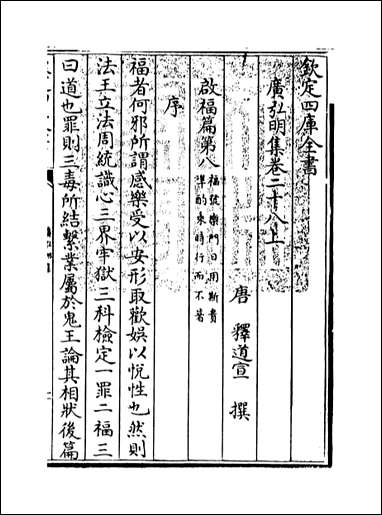 欽定四庫全書
廣弘明集卷二十八上
唐 釋道宣 撰
啟福篇第八福號樂門日用斯貴準酌來時行而不著
序
福者何邪所謂感樂受以安形取歡娛以悅性也然則
法王立法周統識心三界牢獄三科檢定一罪二福三
曰道也罪則三毒所結繫業屬於鬼王論其相狀後篇